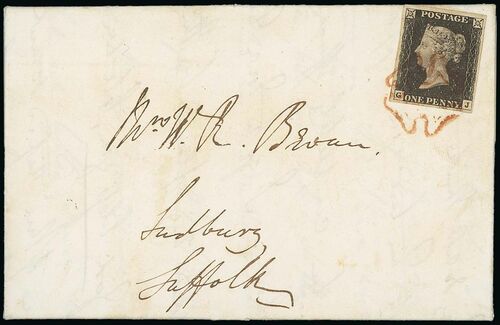 POSTAGE
G J
ONE PENNY
Mrs W. R. Bevan.
Sudbury
Suffolk